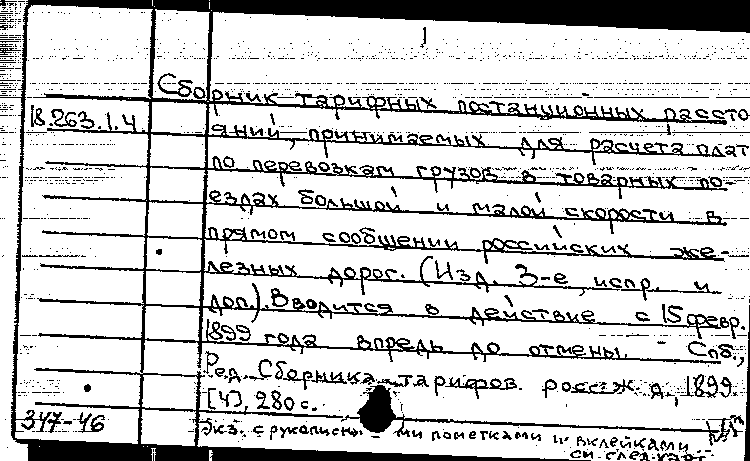 1
Сборник тарифных постанционных рассто
18.263.1.4.
яний, принимаемых для расчета плат
по перевозкам грузов в товарных по-
ездах большой и малой скорости в
прямом сообщении российских же-
лезных дорог. (Изд. 3-е, испр. и
доп.). Вводится в действие с 15 февр.
1899 года впредь до отмены. Спб.,
Ред. Сборника тарифов росс. ж. д., 1899.
[4], 280 с.
347-46
Экз. с рукописны - ми пометками и вклейками
см. след. карт